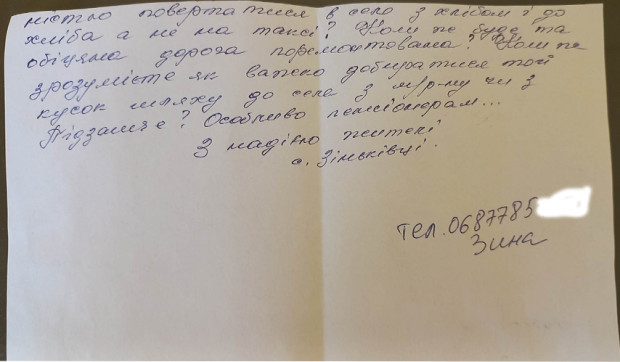 містью повертатися в село з хлібом і до
хліба а не на таксі? Коли же буде та
обіцяна дорога поремонтована? Коли же
зрозумієте як важко добиратися той
кусок шляху до села з м/р-ну чи з
Підзамче? Особливо пенсіонерам...
З надією жителі
с. Зіньківці.
тел. 0687785
Зина